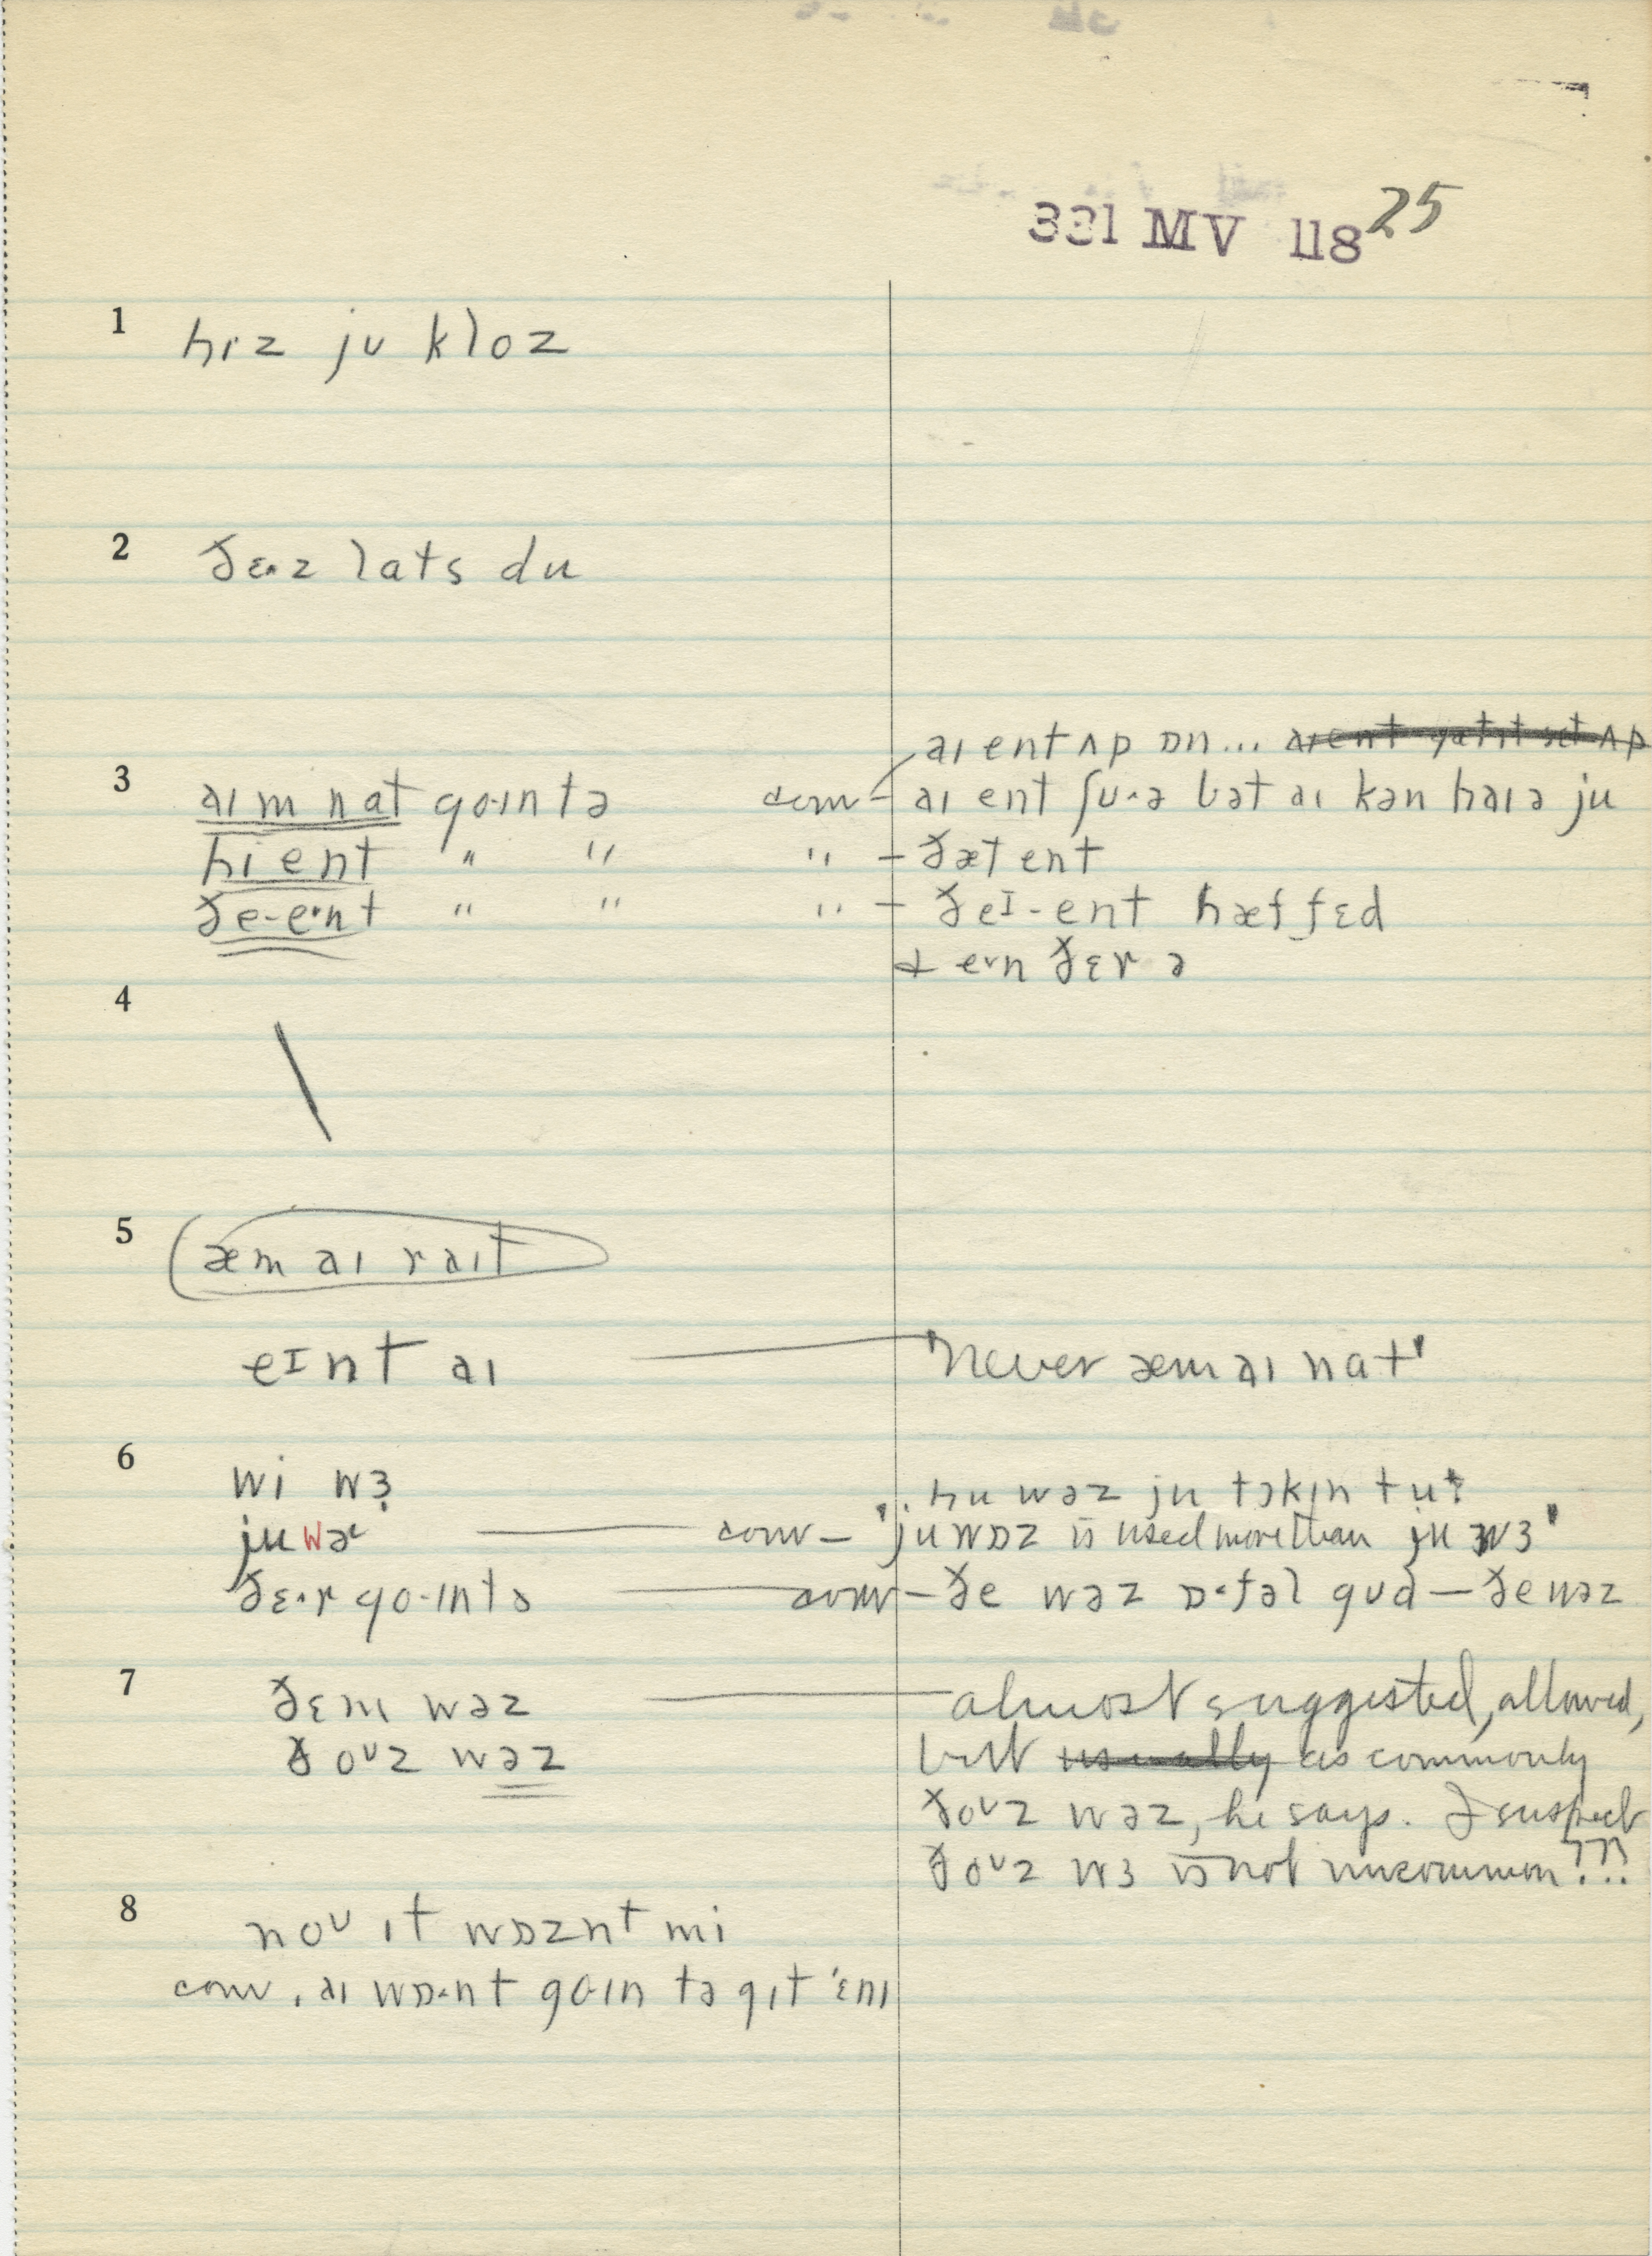 331 MV 118 25
1 hɪz jʊ kloz
2 ðɛɚz lats du
aɪ ent ʌp ɒn...
3 aɪm nat go·ɪn tə conv - aɪ ent ʃʊ·ə bət aɪ kən haɪə ju
hi ent " " " - ðæt ent
ðe-e·nt " " " - ðeɪ-ent hæf fɛd
4
5 æm aɪ raɪt
eɪnt aɪ "never æm aɪ nat"
6 wi wɜ hu wəz ju tɔkɪn tu?
ju wɚ conv - 'ju wɒz is used more than ju wɜ'
ðɛ·r go·ɪn tə conv - ðe wəz ɒ·fəl gʊd - ðe wəz
7 ðɛm wəz almost suggested, allowed,
ðoʊz wəz but usually as commonly
ðoʊz wəz, he says. I suspect
ðoʊz wɜ is not uncommon???
8 noʊ ɪt wɒznt mi
conv. aɪ wɒ·nt go·ɪn tə gɪt ˈɛnɪ